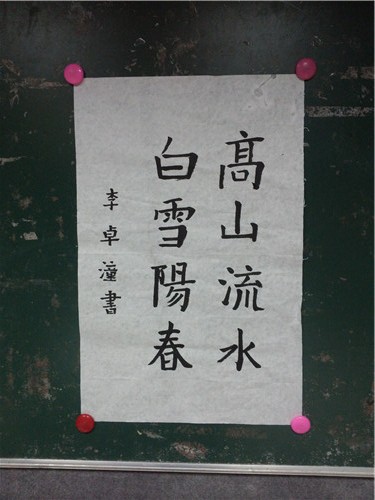 髙山流水
白雪陽春
李卓潼書